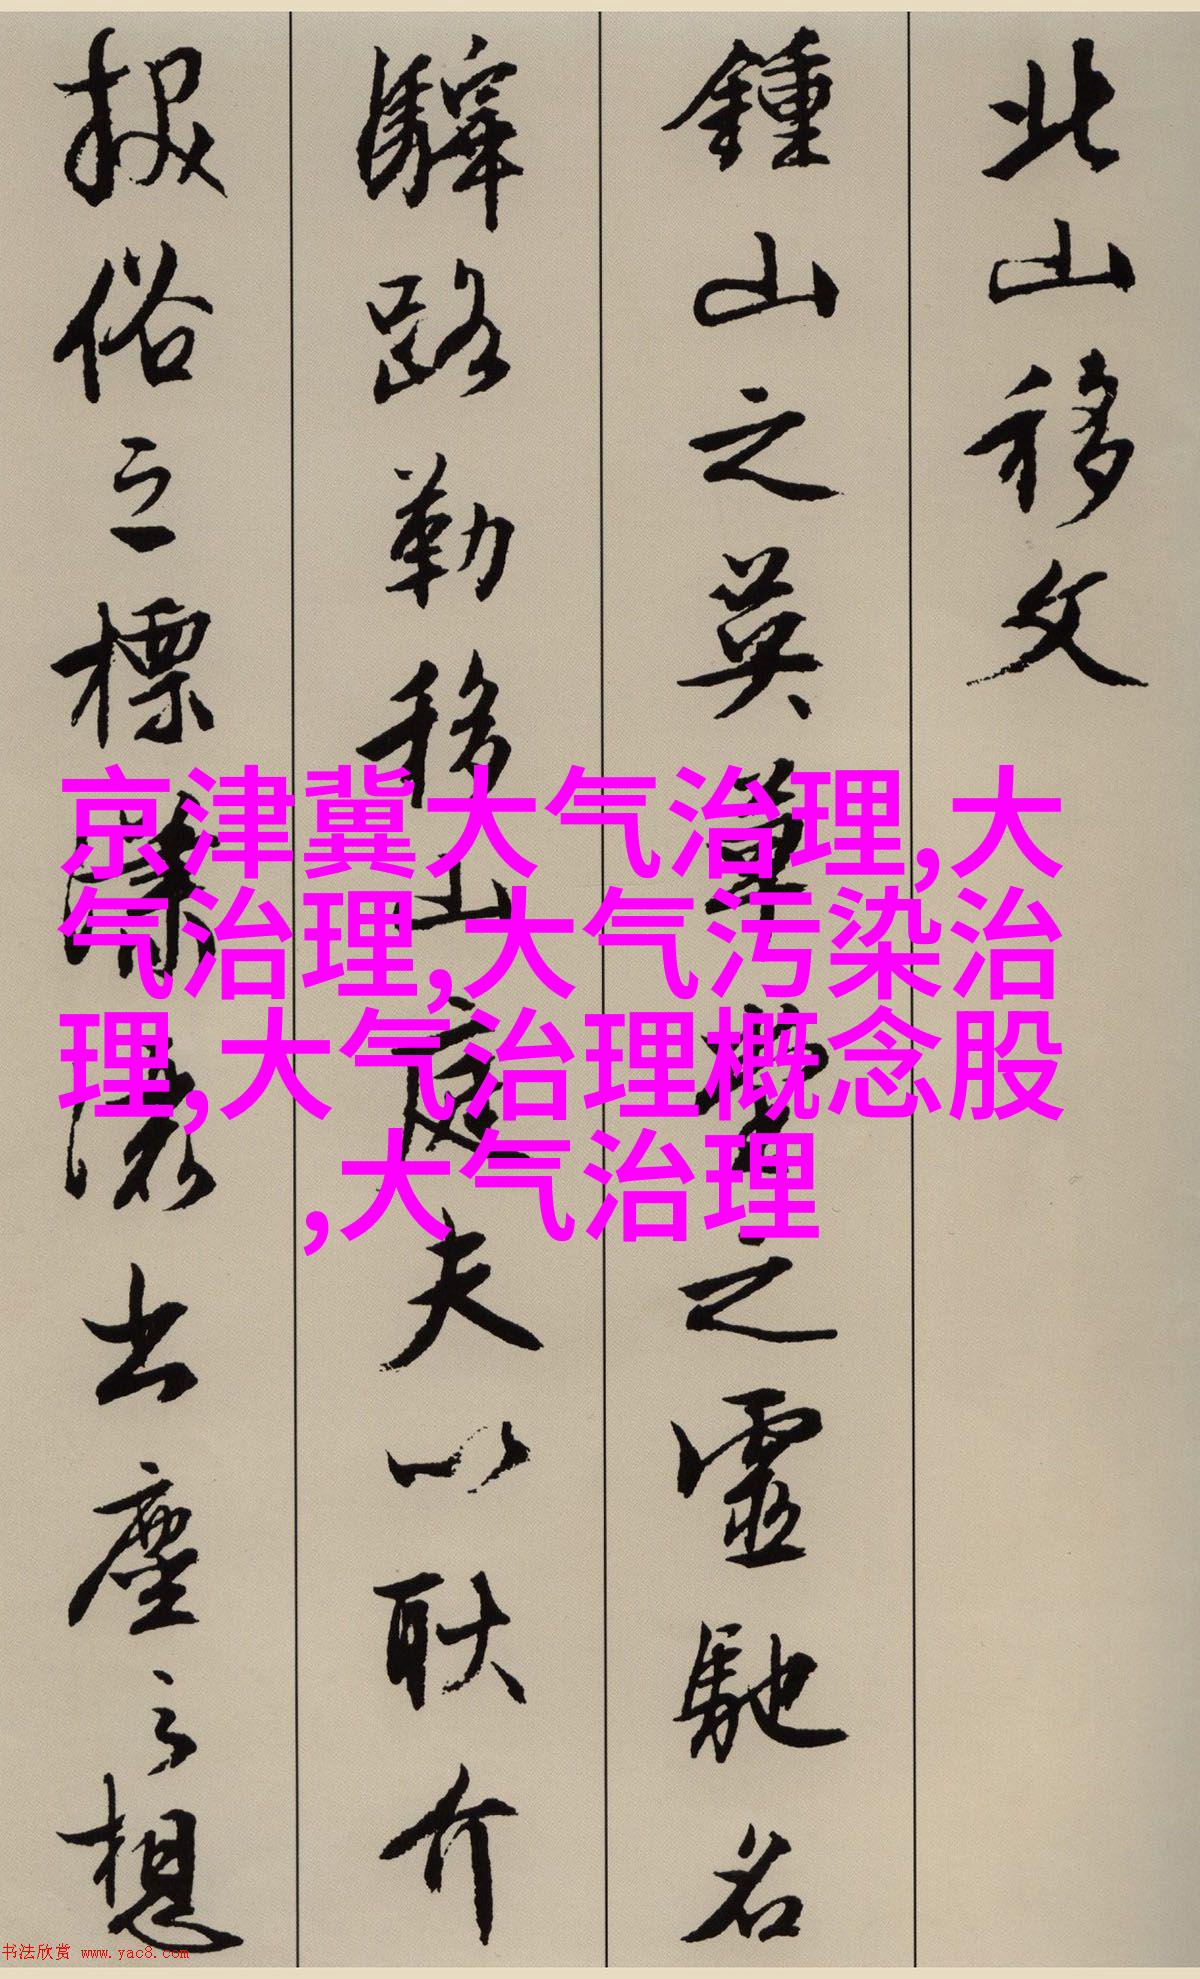 北山移文
鍾山之英草堂之靈馳名
驛路勒移山庭夫以耿介
拔俗之標瀟灑出塵之想
京津冀大气治理,大
气治理,大气污染治
理,大气治理概念股
,大气治理
书法欣赏 www.yac8.com